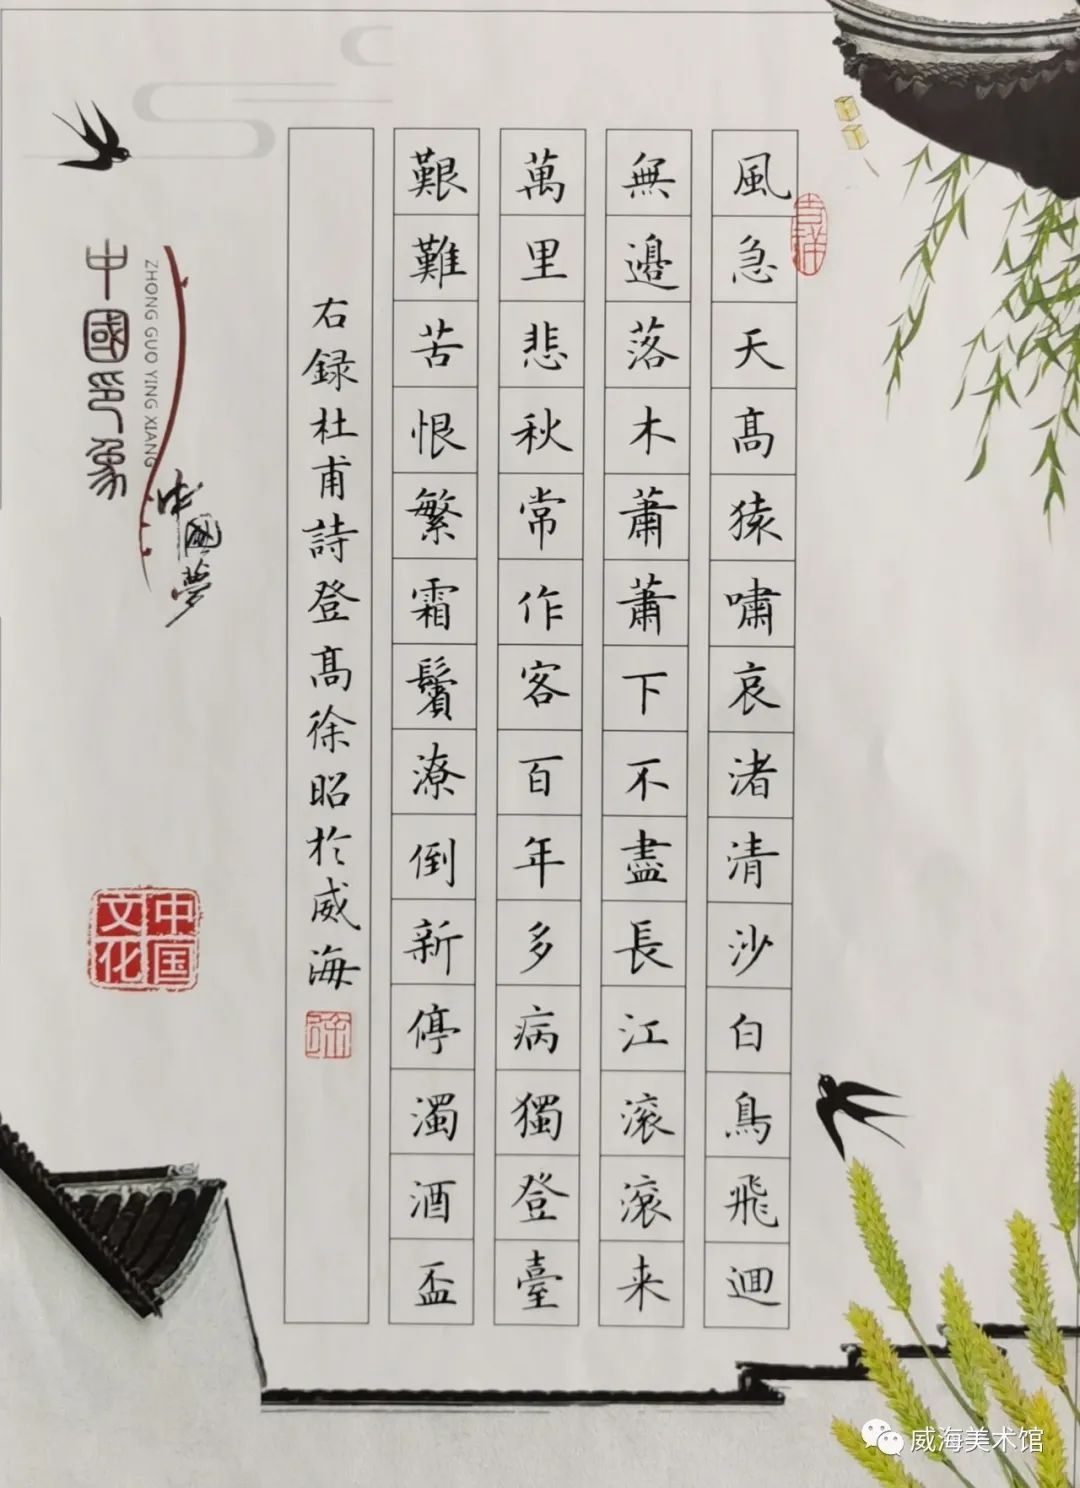 風急天高猿嘯哀渚清沙白鳥飛迴
無邊落木蕭蕭下不盡長江滚滚来
萬里悲秋常作客百年多病獨登臺
艱難苦恨繁霜鬢潦倒新停濁酒盃
右録杜甫詩登高徐昭於威海
吉祥
中國印象
ZHONG GUO YING XIANG
中國夢
中国
文化
威海美术馆